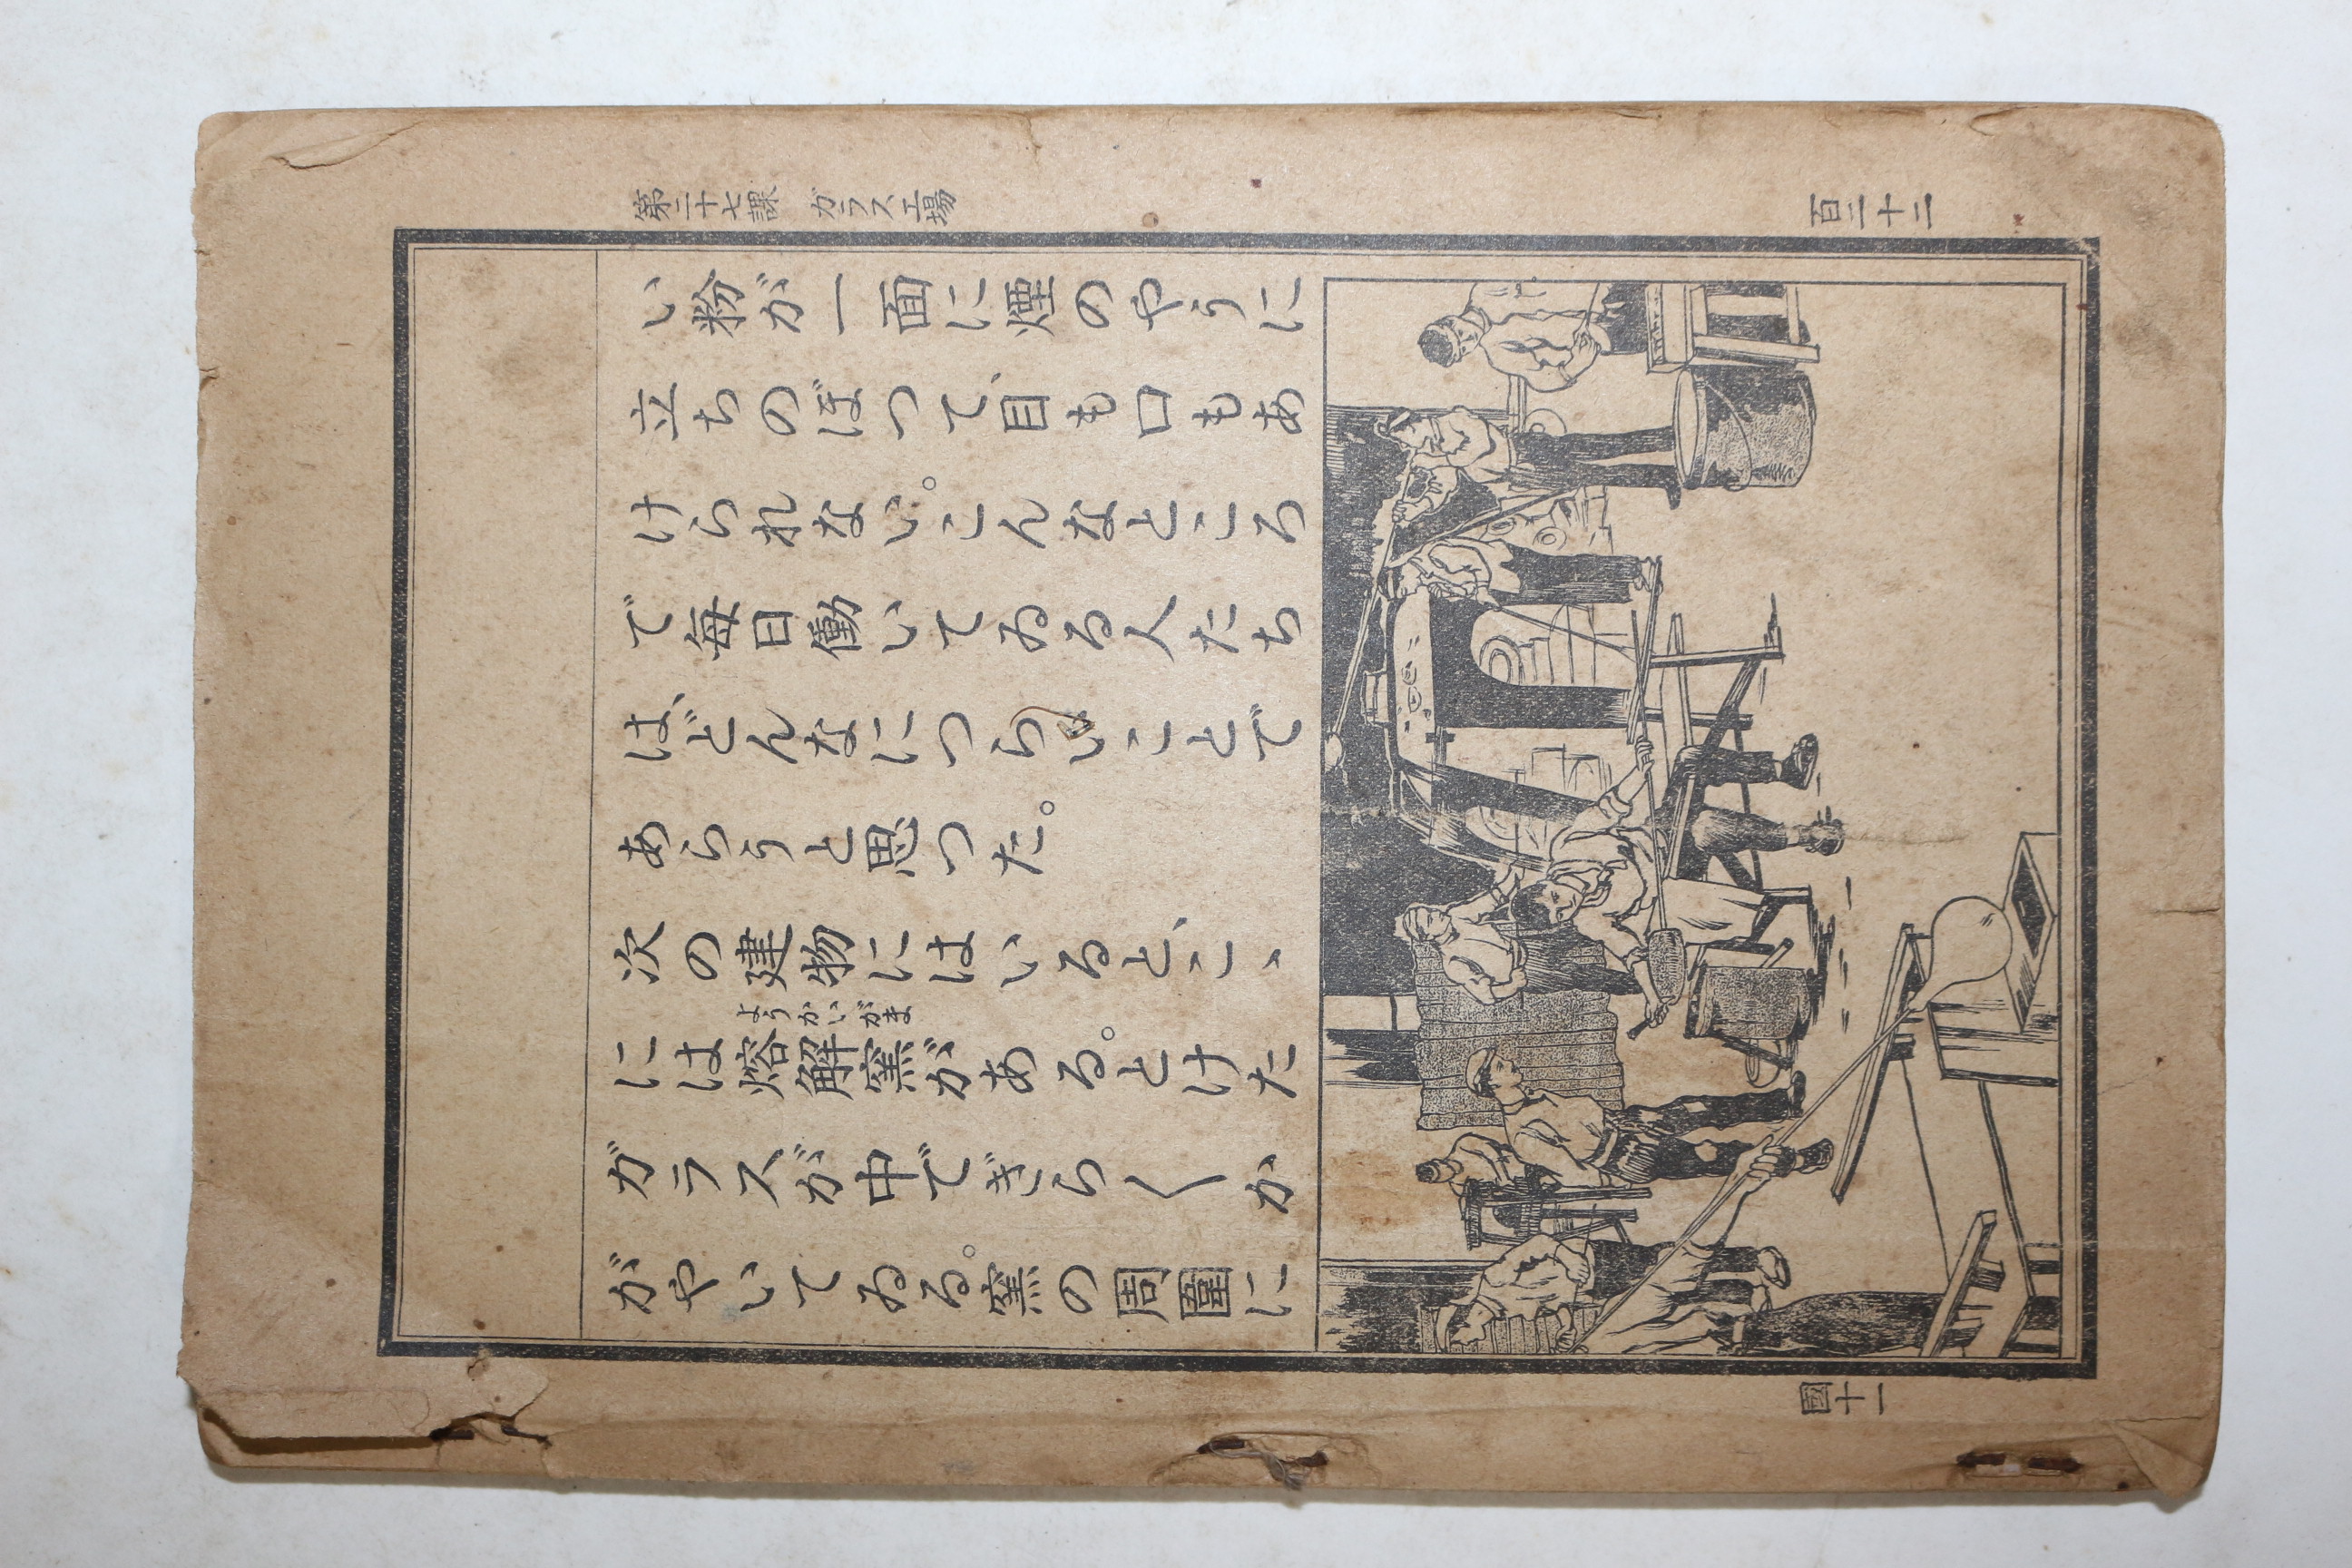 第二十七課 ガラス工場
い粉が一面に煙のやうに
立ちのぼつて、目も口もあ
けられない。こんなところ
で毎日働いてゐる人たち
は、どんなにつらいことで
あらうと思つた。
次の建物にはいると、こゝ
には熔解窯がある。とけた
ようかいがま
ガラスが中でぎら〳〵か
がやいてゐる。窯の周圍に
百二十二
國十一